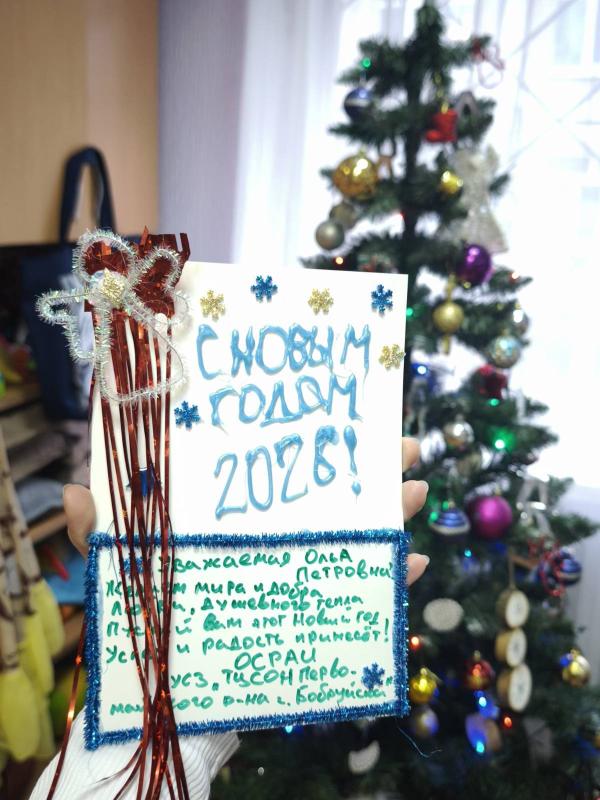 С НОВЫМ
ГОДОМ
2026!
Уважаемая Ольга
Петровна!
Желаем мира и добра
Любви, душевного тепла
Пускай вам этот Новый год
Успех и радость принесёт!
ОСРАИ
УСЗ „ТЦСОН Перво-
майского р-на г. Бобруйска"